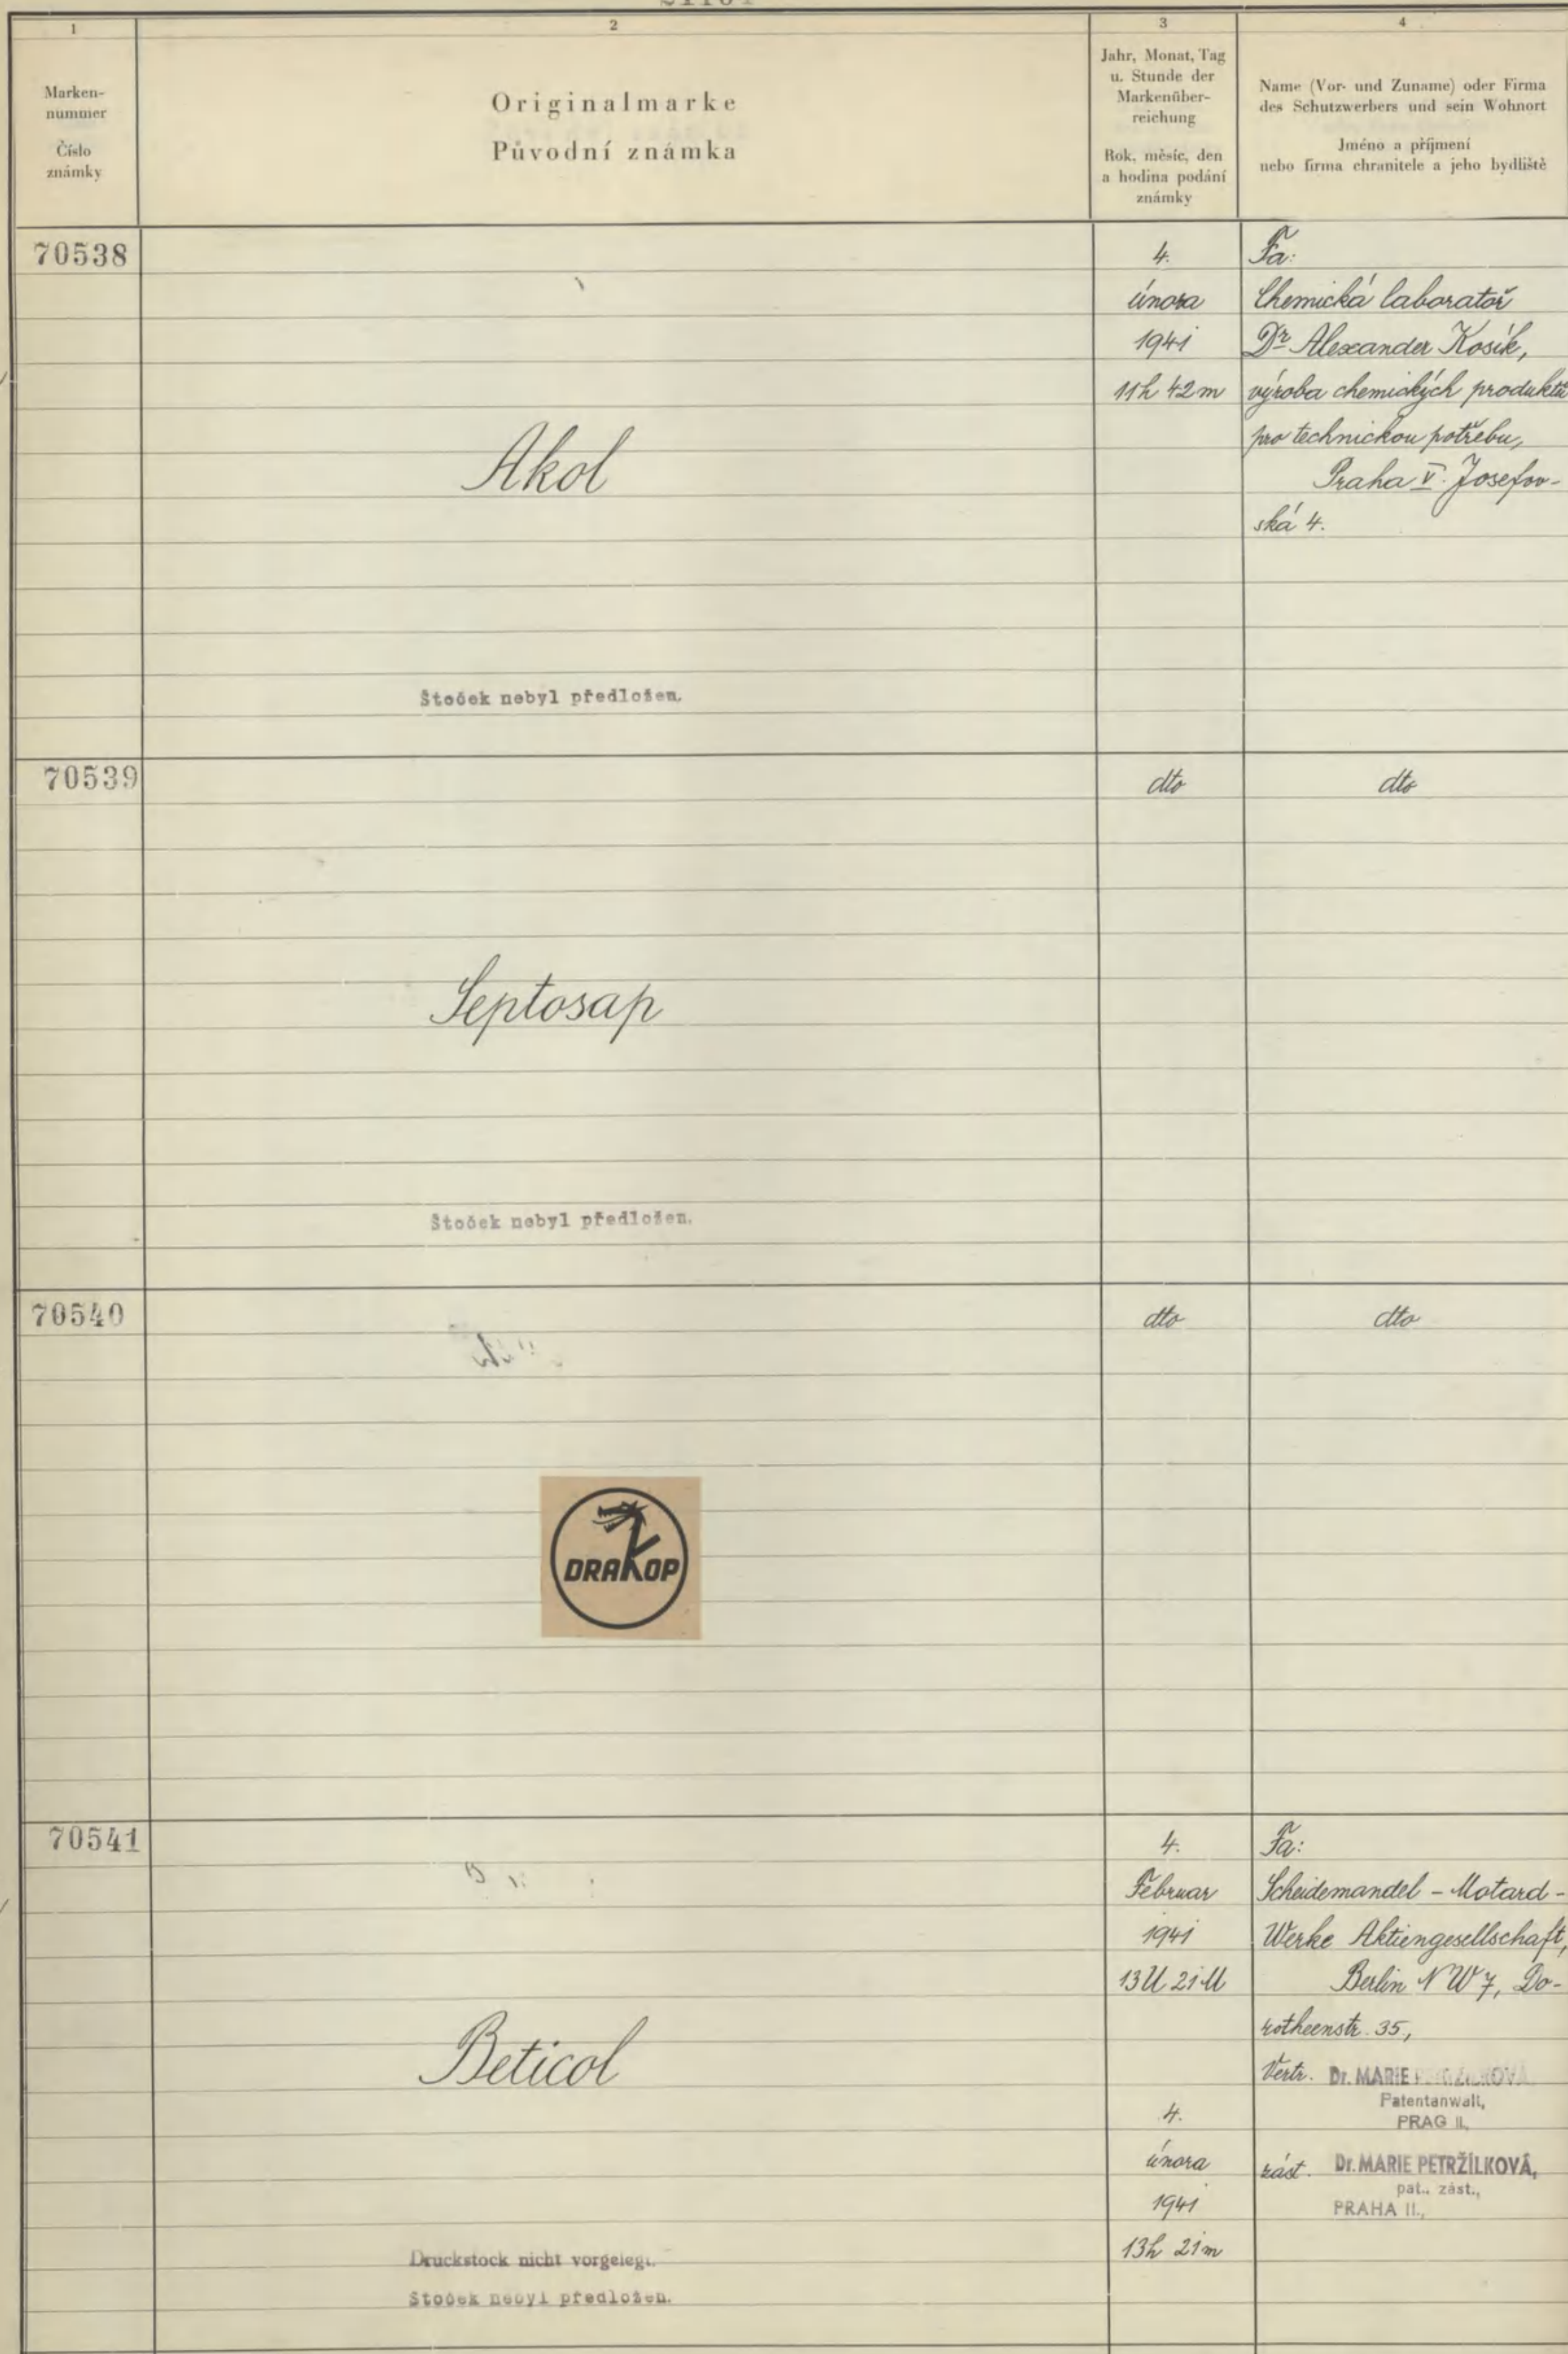 1
2
3
4
Marken-
nummer
Číslo
známky
Originalmarke
Původní známka
Jahr, Monat, Tag
u. Stunde der
Markenüber-
reichung
Rok, měsíc, den
a hodina podání
známky
Name (Vor- und Zuname) oder Firma
des Schutzwerbers und sein Wohnort
Jméno a příjmení
nebo firma chranitele a jeho bydliště
70538
Akol
Štoček nebyl předložen.
4.
února
1941
11h 42m
Fa:
Chemická laboratoř
Dr Alexander Kosík,
výroba chemických produktů
pro technickou potřebu,
Praha V. Josefov-
ská 4.
70539
Septosap
Štoček nebyl předložen.
dto
dto
70540
DRAKOP
dto
dto
70541
Beticol
Druckstock nicht vorgelegt.
Štoček nebyl předložen.
4.
Februar
1941
13U 21M
4.
února
1941
13h 21m
Fa:
Scheidemandel - Motard -
Werke Aktiengesellschaft,
Berlin NW 7, Do-
rotheenstr. 35,
Vertr. Dr. MARIE PETRŽÍLKOVÁ
Patentanwalt,
PRAG II.,
zást. Dr. MARIE PETRŽÍLKOVÁ,
pat. zást.,
PRAHA II.,